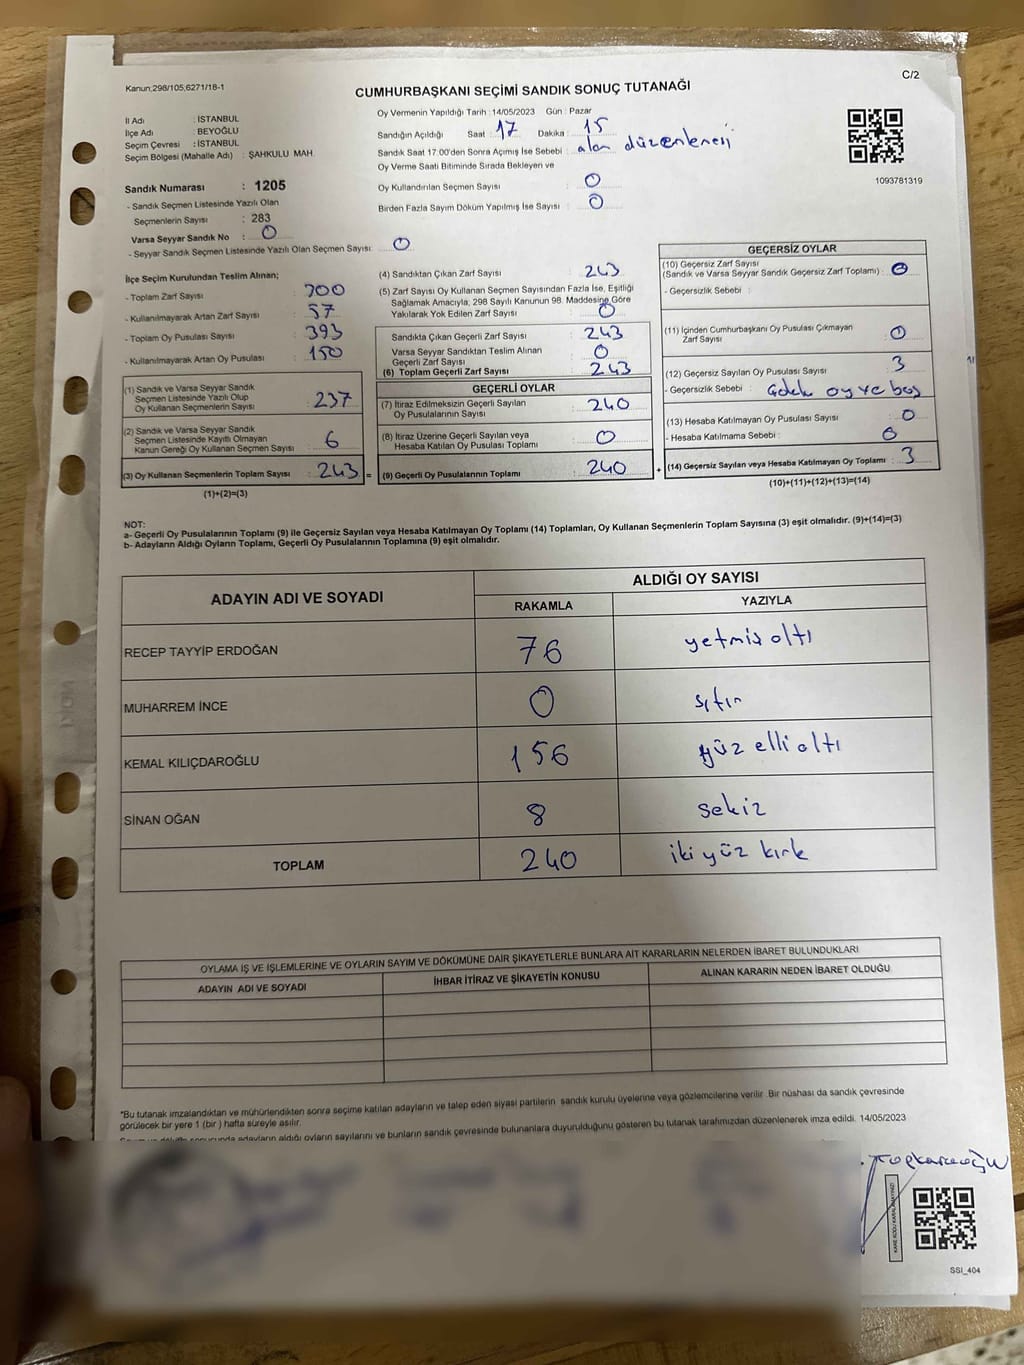 Kanun;298/105,6271/18-1
C/2
CUMHURBAŞKANI SEÇİMİ SANDIK SONUÇ TUTANAĞI
İl Adı : İSTANBUL
İlçe Adı : BEYOĞLU
Seçim Çevresi : İSTANBUL
Seçim Bölgesi (Mahalle Adı) : ŞAHKULU MAH.
Oy Vermenin Yapıldığı Tarih : 14/05/2023 Gün : Pazar
Sandığın Açıldığı Saat : 17 Dakika : 15
Sandık Saat 17:00'den Sonra Açımış İse Sebebi : alan düzenlenesi
Oy Verme Saati Bitiminde Sırada Bekleyen ve
Oy Kullandırılan Seçmen Sayısı : 0
Birden Fazla Sayım Döküm Yapılmış İse Sayısı : 0
1093781319
Sandık Numarası : 1205
- Sandık Seçmen Listesinde Yazılı Olan
Seçmenlerin Sayısı : 283
Varsa Seyyar Sandık No : 0
- Seyyar Sandık Seçmen Listesinde Yazılı Olan Seçmen Sayısı: 0
İlçe Seçim Kurulundan Teslim Alınan;
- Toplam Zarf Sayısı : 300
- Kullanılmayarak Artan Zarf Sayısı : 57
- Toplam Oy Pusulası Sayısı : 393
- Kullanılmayarak Artan Oy Pusulası : 150
(1) Sandık ve Varsa Seyyar Sandık
Seçmen Listesinde Yazılı Olup
Oy Kullanan Seçmenlerin Sayısı : 237
(2) Sandık ve Varsa Seyyar Sandık
Seçmen Listesinde Kayıtlı Olmayan
Kanun Gereği Oy Kullanan Seçmen Sayısı : 6
(3) Oy Kullanan Seçmenlerin Toplam Sayısı : 243 =
(1)+(2)=(3)
(4) Sandıktan Çıkan Zarf Sayısı : 243
(5) Zarf Sayısı Oy Kullanan Seçmen Sayısından Fazla İse, Eşitliği
Sağlamak Amacıyla; 298 Sayılı Kanunun 98. Maddesine Göre
Yakılarak Yok Edilen Zarf Sayısı : 0
Sandıkta Çıkan Geçerli Zarf Sayısı : 243
Varsa Seyyar Sandıktan Teslim Alınan
Geçerli Zarf Sayısı : 0
(6) Toplam Geçerli Zarf Sayısı : 243
GEÇERLİ OYLAR
(7) İtiraz Edilmeksizin Geçerli Sayılan
Oy Pusulalarının Sayısı : 240
(8) İtiraz Üzerine Geçerli Sayılan veya
Hesaba Katılan Oy Pusulası Toplamı : 0
(9) Geçerli Oy Pusulalarının Toplamı : 240 +
GEÇERSİZ OYLAR
(10) Geçersiz Zarf Sayısı
(Sandık ve Varsa Seyyar Sandık Geçersiz Zarf Toplamı) : 0
- Geçersizlik Sebebi :
(11) İçinden Cumhurbaşkanı Oy Pusulası Çıkmayan
Zarf Sayısı : 0
(12) Geçersiz Sayılan Oy Pusulası Sayısı : 3
- Geçersizlik Sebebi : oy ve boş
(13) Hesaba Katılmayan Oy Pusulası Sayısı : 0
- Hesaba Katılmama Sebebi : 0
(14) Geçersiz Sayılan veya Hesaba Katılmayan Oy Toplamı : 3
(10)+(11)+(12)+(13)=(14)
NOT:
a- Geçerli Oy Pusulalarının Toplamı (9) ile Geçersiz Sayılan veya Hesaba Katılmayan Oy Toplamı (14) Toplamları, Oy Kullanan Seçmenlerin Toplam Sayısına (3) eşit olmalıdır. (9)+(14)=(3)
b- Adayların Aldığı Oyların Toplamı, Geçerli Oy Pusulalarının Toplamına (9) eşit olmalıdır.
ADAYIN ADI VE SOYADI
ALDIĞI OY SAYISI
RAKAMLA YAZIYLA
RECEP TAYYİP ERDOĞAN 76 yetmiş altı
MUHARREM İNCE 0 sıfır
KEMAL KILIÇDAROĞLU 156 yüz elli altı
SİNAN OĞAN 8 sekiz
TOPLAM 240 iki yüz kırk
OYLAMA İŞ VE İŞLEMLERİNE VE OYLARIN SAYIM VE DÖKÜMÜNE DAİR ŞİKAYETLERLE BUNLARA AİT KARARLARIN NELERDEN İBARET BULUNDUKLARI
ADAYIN ADI VE SOYADI İHBAR İTİRAZ VE ŞİKAYETİN KONUSU ALINAN KARARIN NEDEN İBARET OLDUĞU
*Bu tutanak imzalandıktan ve mühürlendikten sonra seçime katılan adayların ve talep eden siyasi partilerin sandık kurulu üyelerine veya gözlemcilerine verilir. Bir nüshası da sandık çevresinde
görülecek bir yere 1 (bir ) hafta süreyle asılır.
sonucunda adayların aldığı oyların sayılarını ve bunların sandık çevresinde bulunanlara duyurulduğunu gösteren bu tutanak tarafımızdan düzenlenerek imza edildi. 14/05/2023
SSI_404